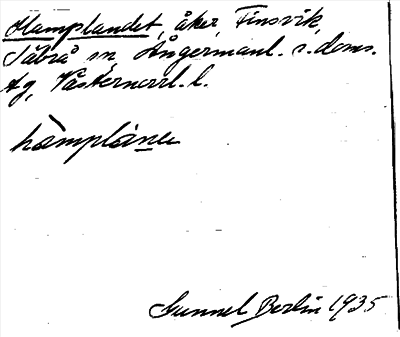 Hamplandet, åker, Finsvik,
Säbrå sn, Ångermanl. s. doms.
tg, Västernorrl. l.
hàmplánɛ
Gunnel Berlin 1935